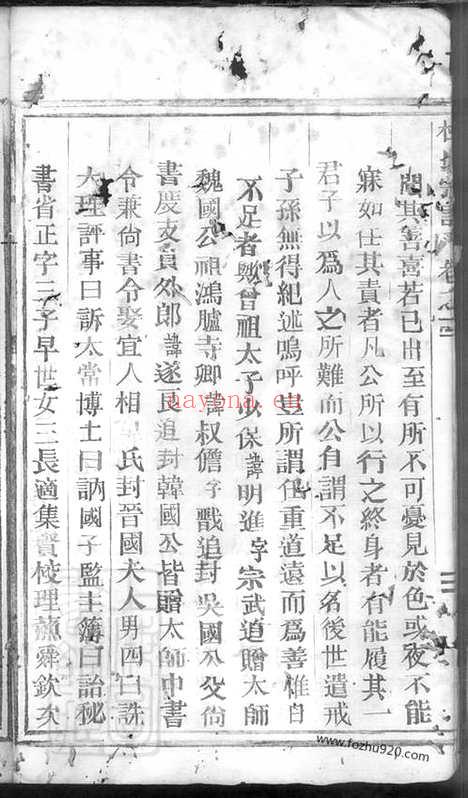 聞其善喜若已出至有所不可憂見於色或夜不能
寐如任其責者凡公所以行之終身者有能履其一
君子以爲人之所難而公自謂不足以名後世遺戒
子孫無得紀述嗚呼豈所謂任重道遠而爲善惟日
不足者歟曾祖太子少保諱明進字宗武追贈太師
魏國公祖鴻臚寺卿諱叔儋字戩追封吳國公父尙
書度支員外郎諱遂良追封韓國公皆贈太師中書
令兼尙書令娶宜人相里氏封晉國夫人男四曰誄
大理評事曰訴太常博士曰訥國子監主簿曰詒秘
書省正字三子早世女三長適集賢校理蘇舜欽次
卷之二
nayona.cn
www.fozhu920.com